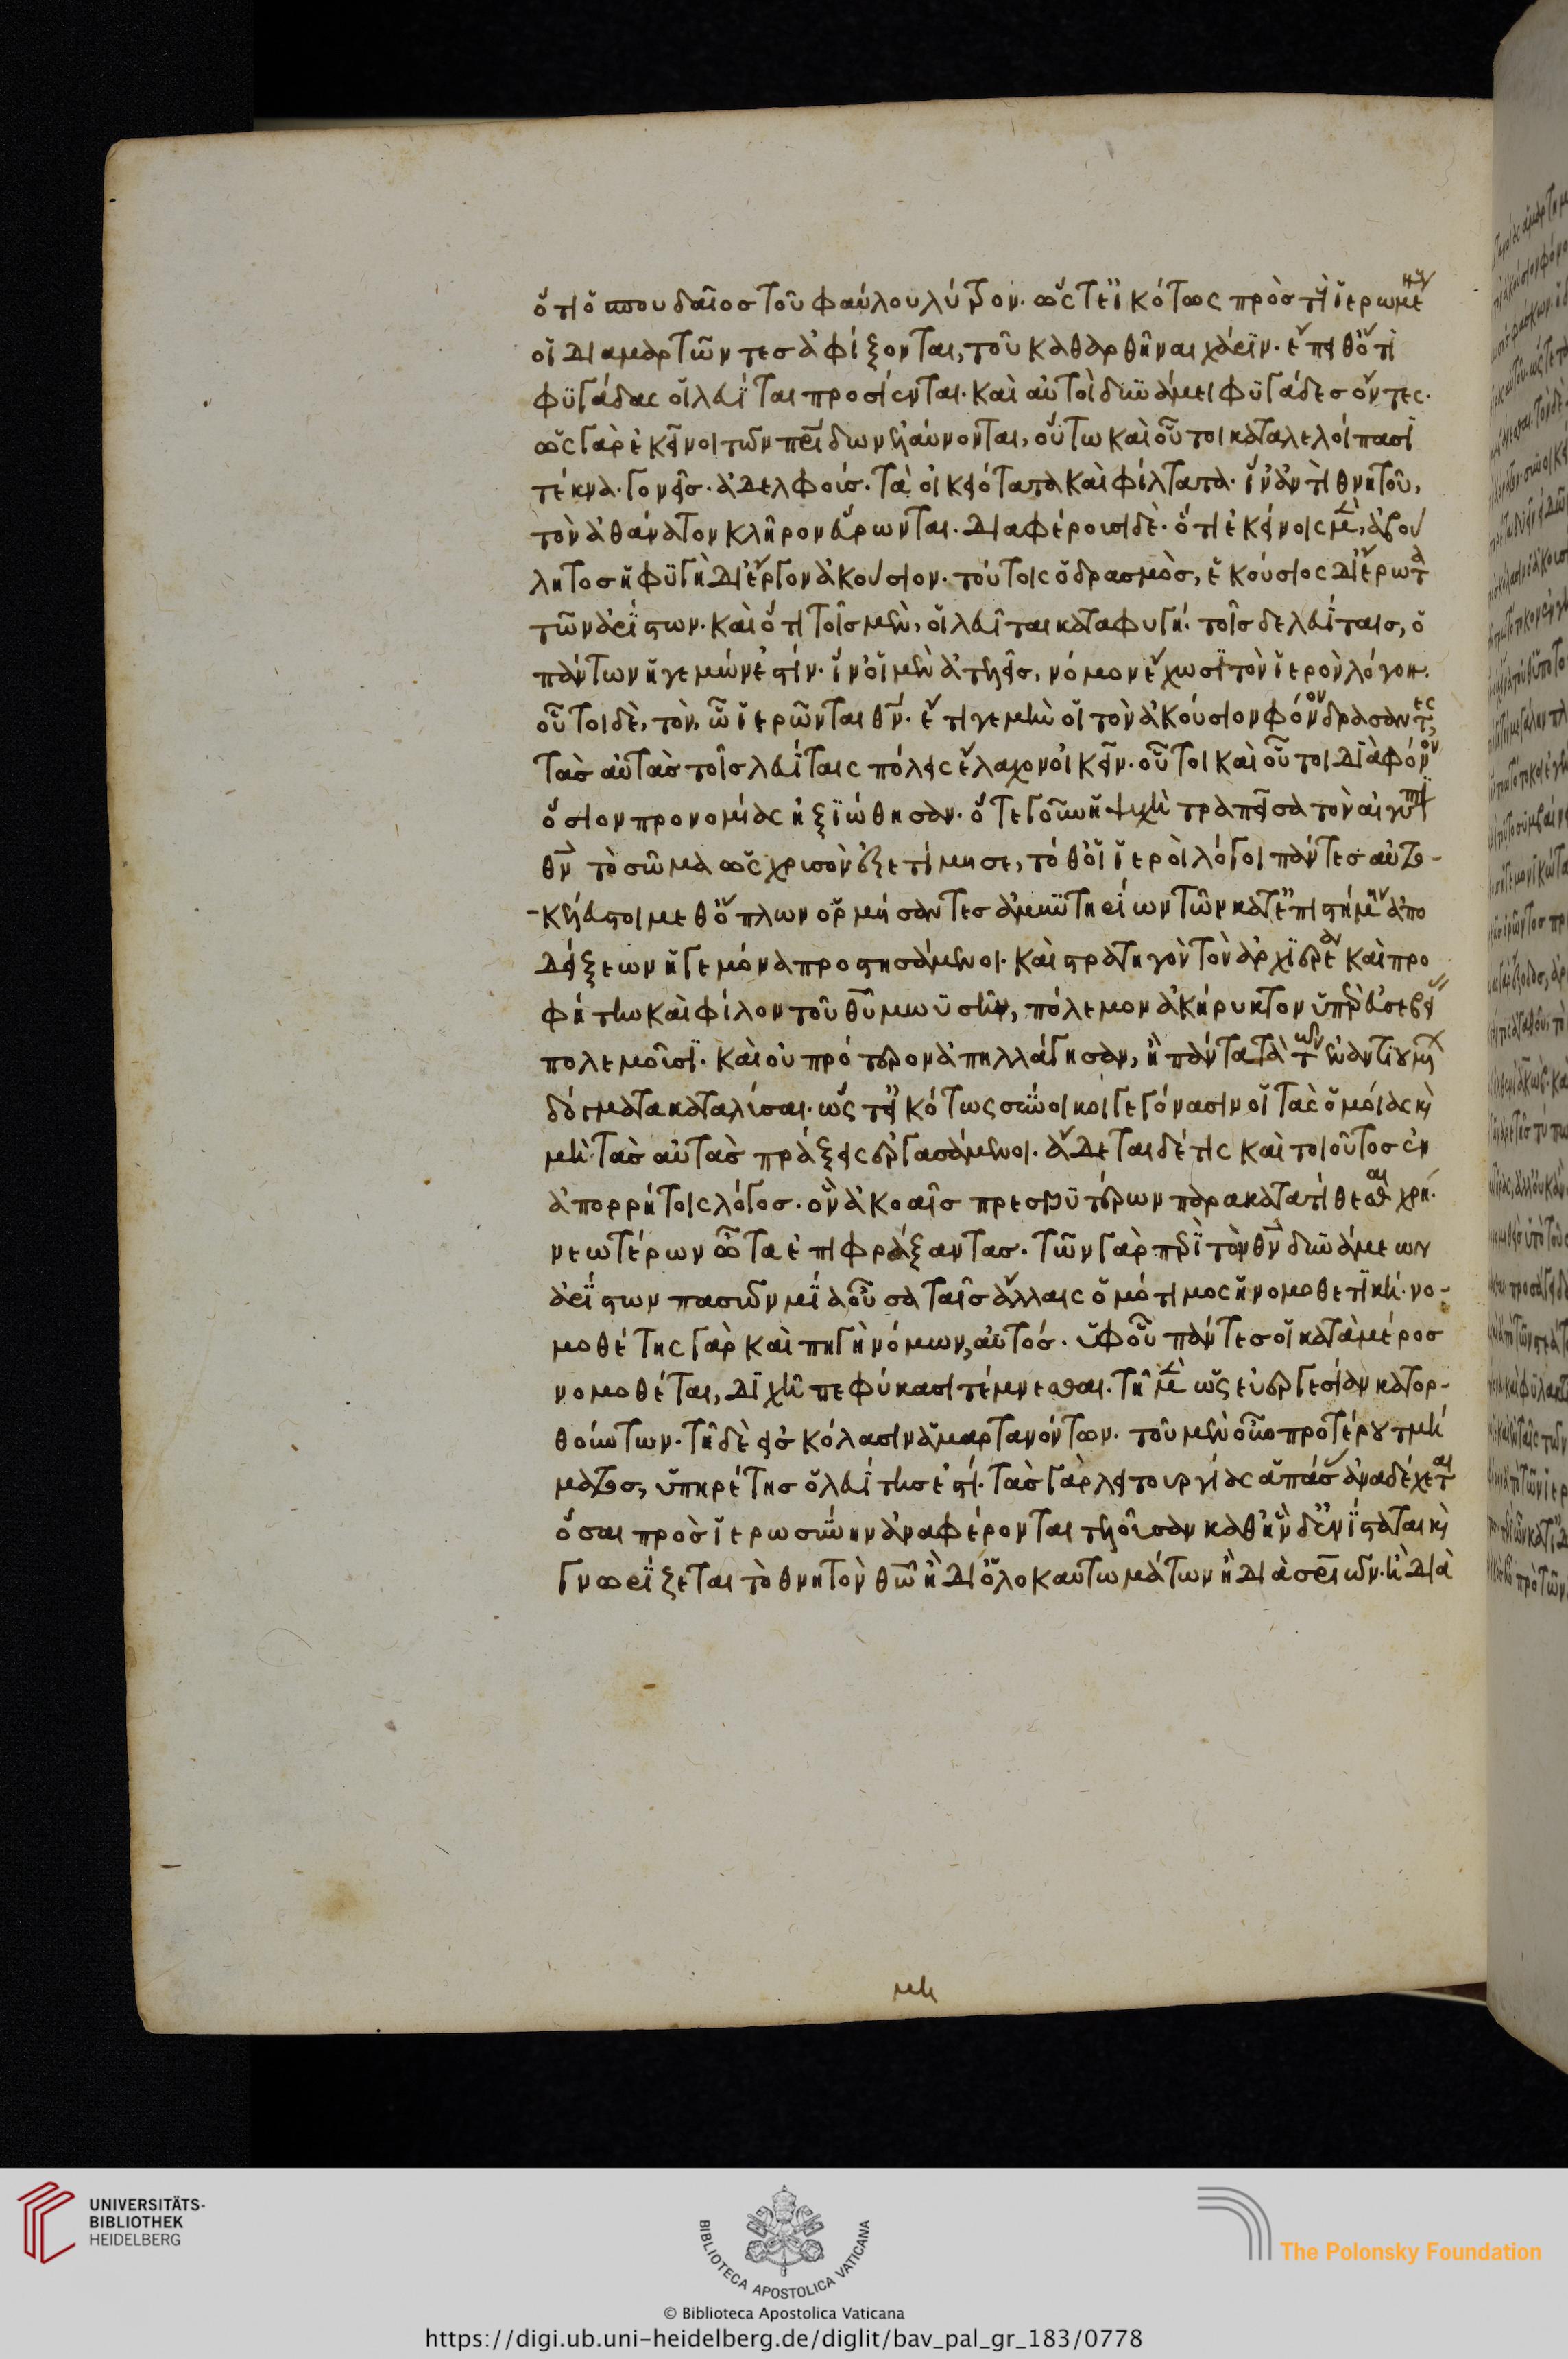 ὅτι ὁ σπουδαῖος τοῦ φαύλου λύτρον. ὥς τ εἰκότως πρὸς τοὺς ἱερωμένους
οἱ διαμαρτῶντες ἀφίξονται, τοῦ καθαρθῆναι χάριν. ἔπειθ ὅτι
φυγάδας οἱ λευῖται προσίενται. καὶ αὐτοὶ δυνάμει φυγάδες ὄντες.
ὡς γὰρ ἐκεῖνοι τῶν πατρίδων ἐλαύνονται, οὕτω καὶ οὗτοι καταλελοίπασι
τέκνα. γονεῖς. ἀδελφούς. τὰ οἰκειότατα καὶ φίλτατα. ἵν ἀντὶ θνητοῦ,
τὸν ἀθάνατον κλῆρον εὕρωνται. διαφέρουσι δὲ. ὅτι ἐκείνοις μὲν, ἀβού
λητος ἡ φυγὴ δι ἔργον ἀκούσιον. τούτοις ὁ δρασμὸς, ἑκούσιος δι ἔρωτα
τῶν ἀρίστων. καὶ ὅτι τοῖς μὲν, οἱ λευῖται καταφυγή. τοῖς δὲ λευίταις, ὁ
πάντων ἡγεμών ἐστίν. ἵν οἱ μὲν ἀτελεῖς, νόμον ἔχωσι τὸν ἱερὸν λόγον.
οὗτοι δὲ, τὸν, ᾧ ἱερῶνται θν. ἔτι γε μὴν οἱ τὸν ἀκούσιον φόνον δράσαντες,
τὰς αὐτὰς τοῖς λευίταις πόλεις ἔλαχον οἰκεῖν. οὗτοι καὶ οὗτοι διὰ φόνον
ὅσιον προνομίας ἠξιώθησαν. ὅτε γοῦν ἡ ψυχὴ τραπεῖσα τὸν αἰγύπτι
θν τὸ σῶμα ὡς χρυσὸν ἐξετίμησε, τόθ οἱ ἱεροὶ λόγοι πάντες αὐτο-
-κέλευστοι μεθ ὅπλων ὁρμήσαντες ἀμυντηρίων τῶν κατ ἐπιστήμην ἀπο
δείξεων ἡγεμόνα προστησάμενοι. καὶ στρατηγὸν τὸν ἀρχιερέα καὶ προ
φήτην καὶ φίλον τοῦ θυ μωυσῆν, πόλεμον ἀκήρυκτον ὑπὲρ εὐσεβείας
πολεμοῦσι. καὶ οὐ πρότερον ἀπηλλάγησαν, ἢ πάντα τὰ τῶν ἐναντιουμένων
δόγματα καταλῦσαι. ὥς τ εἰκότως σύνοικοι γεγόνασιν οἱ τὰς ὁμοίας καὶ
μὴ τὰς αὐτὰς πράξεις ἐργασάμενοι. ἄδεται δέ τις καὶ τοιοῦτος ἐν
ἀπορρήτοις λόγος. ὃν ἀκοαῖς πρεσβυτέρων παρακατατίθεσθαι χρή.
νεωτέρων ὦτα ἐπιφράξαντας. τῶν γὰρ περὶ τὸν θν δυνάμεων
ἀρίστων πασῶν μία οὖσα ταῖς ἄλλαις ὁμότιμος ἡ νομοθετική. νο-
μοθέτης γὰρ καὶ πηγὴ νόμων, αὐτός. ὑφ οὗ πάντες οἱ κατὰ μέρος
νομοθέται, διχῆ πεφύκασι τέμνεσθαι. τῆ μὲν ὡς εὐεργεσίαν κατορ-
θούντων. τῆ δὲ εἰς κόλασιν ἁμαρτανόντων. τοῦ μὲν οὖν προτέρου τμή
ματος, ὑπηρέτης ὁ λευίτης ἐστί. τὰς γὰρ λειτουργίας ἁπάσας ἀναδέχεται
ὅσαι πρὸς ἱερωσύνην ἀναφέρονται τελοῦσαν καθ ἣν διενίσταται καὶ
γνωρίζεται τὸ θνητὸν θῶ ἢ δι ὁλοκαυτωμάτων ἢ διὰ σωτηρίων. ἢ διὰ
μη
UNIVERSITÄTS-
BIBLIOTHEK
HEIDELBERG
BIBLIOTECA APOSTOLICA VATICANA
The Polonsky Foundation
© Biblioteca Apostolica Vaticana
https://digi.ub.uni-heidelberg.de/diglit/bav_pal_gr_183/0778